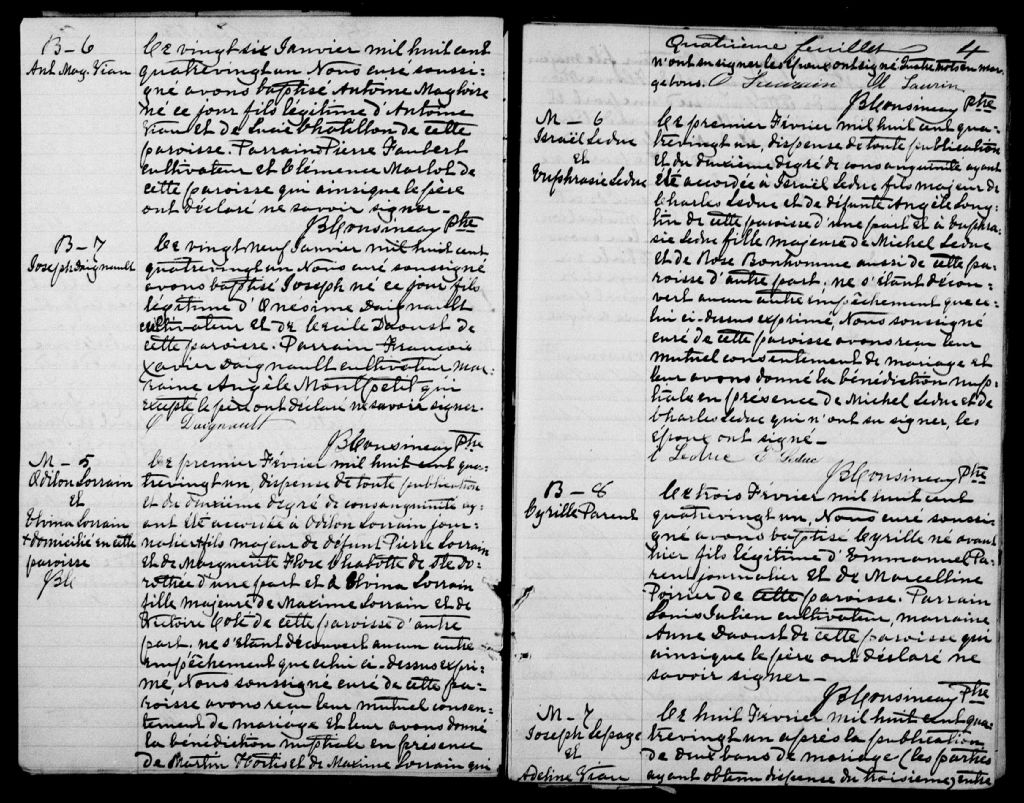 B-6
Ant. Mag. Viau
Le vingt six Janvier mil huit cent
quatrevingt un Nous curé soussi-
gné avons baptisé Antoine Magloire
né ce jour fils légitime d'Antoine
Viau et de Lucie Chatillon de cette
paroisse. Parrain Pierre Faubert
cultivateur et Clémence Marlot de
cette paroisse qui ainsi que le père
ont déclaré ne savoir signer.-
B Cousineau Ptre
B-7
Joseph Daignault
Le vingt neuf Janvier mil huit cent
quatrevingt un Nous curé soussigné
avons baptisé Joseph né ce jour fils
légitime d'Onésime Daignault
cultivateur et de Cécile Daoust de
cette paroisse. Parrain François
Xavier Daignault cultivateur mar-
raine Angèle Montpetit qui
excepté le père ont déclaré ne savoir signer.
O Daignault
B Cousineau Ptre
M-5
Odilon Lorrain
et
Elvina Lorrain
+ domicilié en cette
paroisse
B C
Le premier Février mil huit cent qua-
trevingt un, dispense de toute publication
et du deuxième degré de consanguinité ay-
ant été accordée à Odilon Lorrain jour-
nalier + fils majeur de défunt Pierre Lorrain
et de Marguerite Flore Chabotte de Ste Do-
rothée d'une part et à Elvina Lorrain
fille majeure de Maxime Lorrain et de
Victoire Coté de cette paroisse d'autre
part. ne s'étant découvert aucun autre
empêchement que celui ci-dessus expri-
mé, Nous soussigné curé de cette pa-
roisse avons reçu leur mutuel consen-
tement de mariage et leur avons donné
la bénédiction nuptiale en présence
de Martin et de Maxime Lorrain qui
Quatrième feuillet 4
n'ont su signer les époux ont signé Quatre mots en mar
ge bons.
B Cousineau Ptre
M-6
Israël Leduc
et
Euphrasie Leduc
Le premier Février mil huit cent qua-
trevingt un, dispense de toute publication
et du deuxième degré de consanguinité ayant
été accordée à Israël Leduc fils majeur de
Charles Leduc et de défunte Angèle Long-
tin de cette paroisse d'une part et à Euphra-
sie Leduc fille majeure de Michel Leduc
et de Rose Bonhomme aussi de cette pa-
roisse d'autre part; ne s'étant décou-
vert aucun autre empêchement que ce-
lui ci-dessus exprimé, Nous soussigné
curé de cette paroisse avons reçu leur
mutuel consentement de mariage et
leur avons donné la bénédiction nup-
tiale en présence de Michel Leduc et de
Charles Leduc qui n'ont su signer, les
époux ont signé-
I Leduc E Leduc
B Cousineau Ptre
B-8
Cyrille Parent
Le trois Février mil huit cent
quatrevingt un, Nous curé soussi-
gné avons baptisé Cyrille né avant
hier fils légitime d'Emmanuel Pa-
rent journalier et de Marcelline
Poirier de cette paroisse. Parrain
Louis Julien cultivateur, marraine
Anne Daoust de cette paroisse qui
ainsi que le père ont déclaré ne
savoir signer-
B Cousineau Ptre
M-7
Joseph Lepage
et
Adeline Viau
Le huit Février mil huit cent qua-
trevingt un après la publication
de deux bans de mariage (les parties
ayant obtenu dispense du troisième) entre